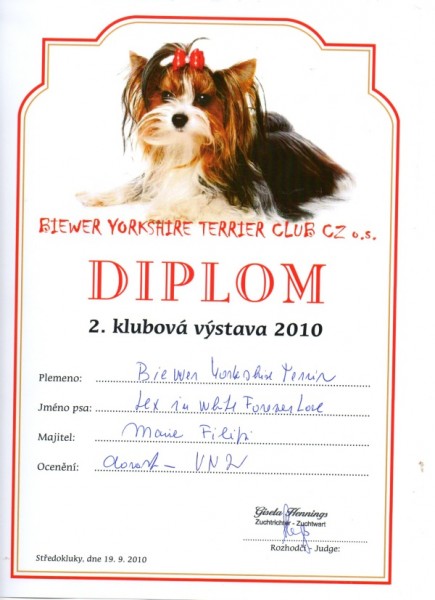 BIEWER YORKSHIRE TERRIER CLUB CZ o.s.
DIPLOM
2. klubová výstava 2010
Plemeno: Biewer Yorkshire Terrier
Jméno psa: Lex in White Forever Love
Majitel: Marie Filipi
Ocenění: dorost - VN2
Gisela Hennings
Zuchtrichter - Zuchtwart
Rozhodčí / Judge:
Středokluky, dne 19. 9. 2010